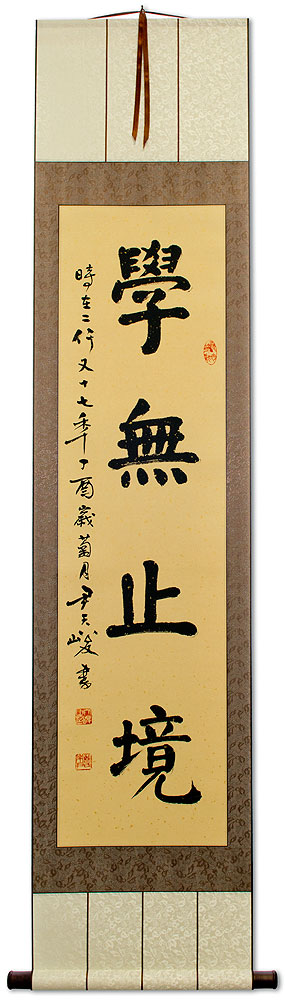 學無止境
時在二仟又十七年丁酉歲菊月尹天峻書